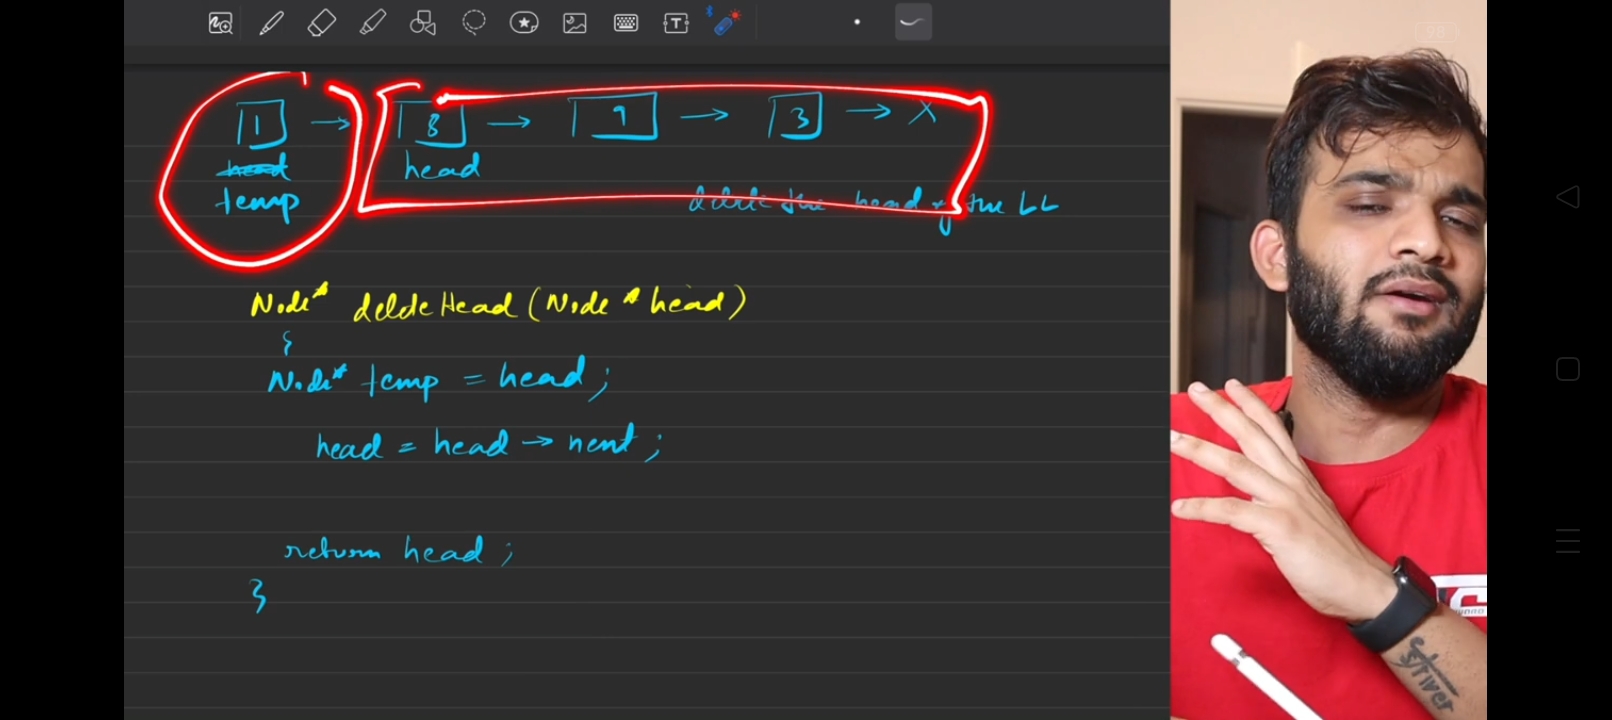 T
98
1 → 8 → 9 → 3 → X
head head
temp
delete the head of the LL
Node* deleteHead(Node* head)
{
Node* temp = head;
head = head → next;
return head;
}
striver